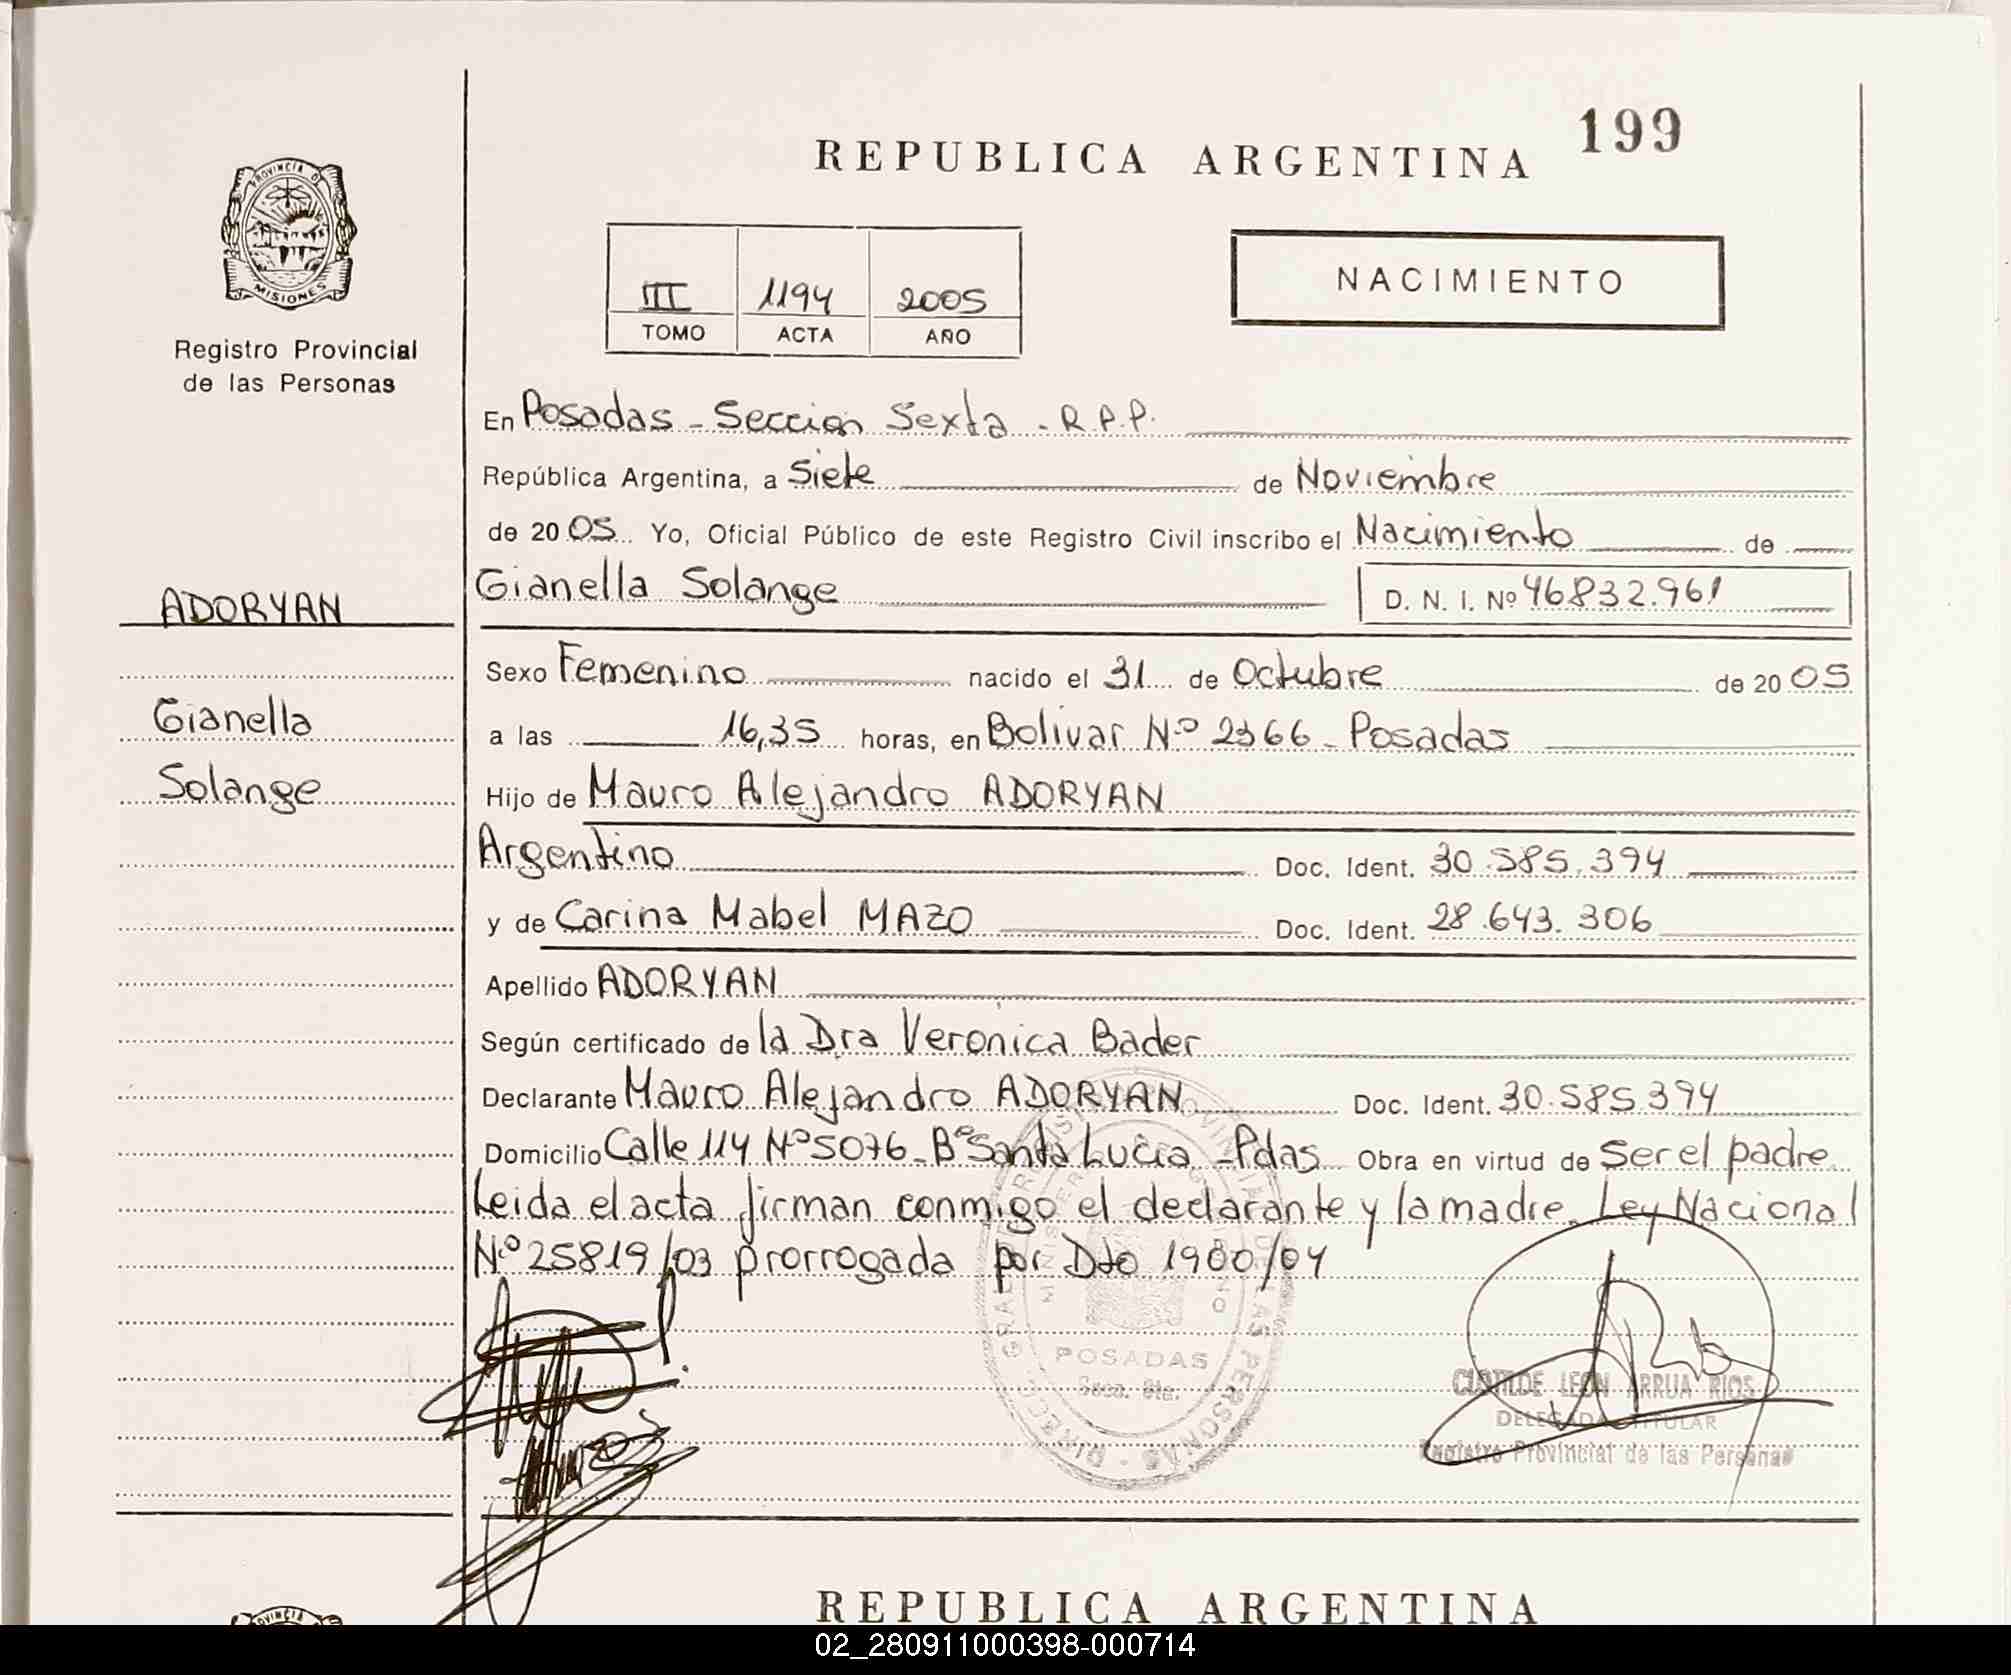 199
REPUBLICA ARGENTINA
PROVINCIA D
MISIONES
Registro Provincial
de las Personas
NACIMIENTO
III 1194 2005
TOMO ACTA AÑO
En Posadas - Seccion Sexta - R.P.P.
República Argentina, a Siete de Noviembre
de 2005 Yo, Oficial Público de este Registro Civil inscribo el Nacimiento de
ADORYAN
Gianella Solange D. N. I. Nº 46832.961
Sexo Femenino nacido el 31 de Octubre de 2005
Gianella
a las 16,35 horas, en Bolivar Nº 2366 - Posadas
Solange
Hijo de Mauro Alejandro ADORYAN
Argentino Doc. Ident. 30.585.394
y de Carina Mabel MAZO Doc. Ident. 28.643.306
Apellido ADORYAN
Según certificado de la Dra Veronica Bader
Declarante Mauro Alejandro ADORYAN Doc. Ident. 30.585.394
Domicilio Calle 114 Nº 5076 - Bº Santa Lucia - Pdas Obra en virtud de Ser el padre
Leida el acta firman conmigo el declarante y la madre. Ley Nacional
Nº 25819/03 prorrogada por Dto 1900/04
POSADAS
CLOTILDE LEON ARRUA RIOS
DELEGADA TITULAR
Registro Provincial de las Personas
REPUBLICA ARGENTINA
02_280911000398-000714